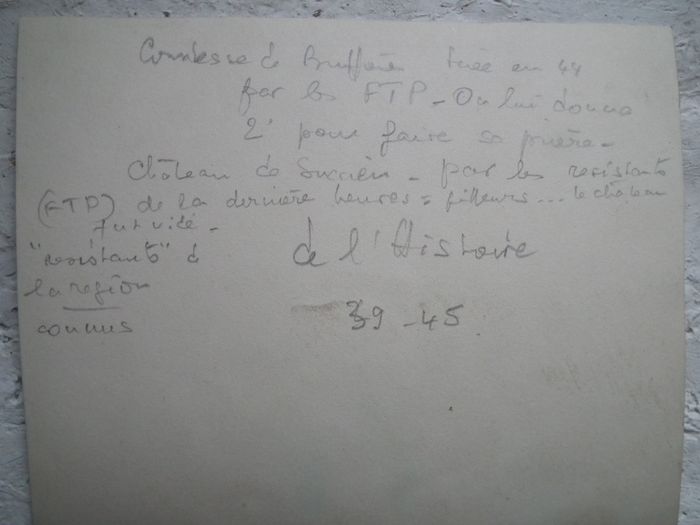 Comtesse de Buffières tuée en 44
par les FTP - On lui donna
2' pour faire sa prière -
Château de - par les resistants
(FTP) de la dernière heures = pilleurs... le château
fut vidé -
"resistants" de
la region
connus
de l'Histoire
39-45